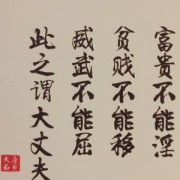 富贵不能淫
贫贱不能移
威武不能屈
此之谓大丈夫